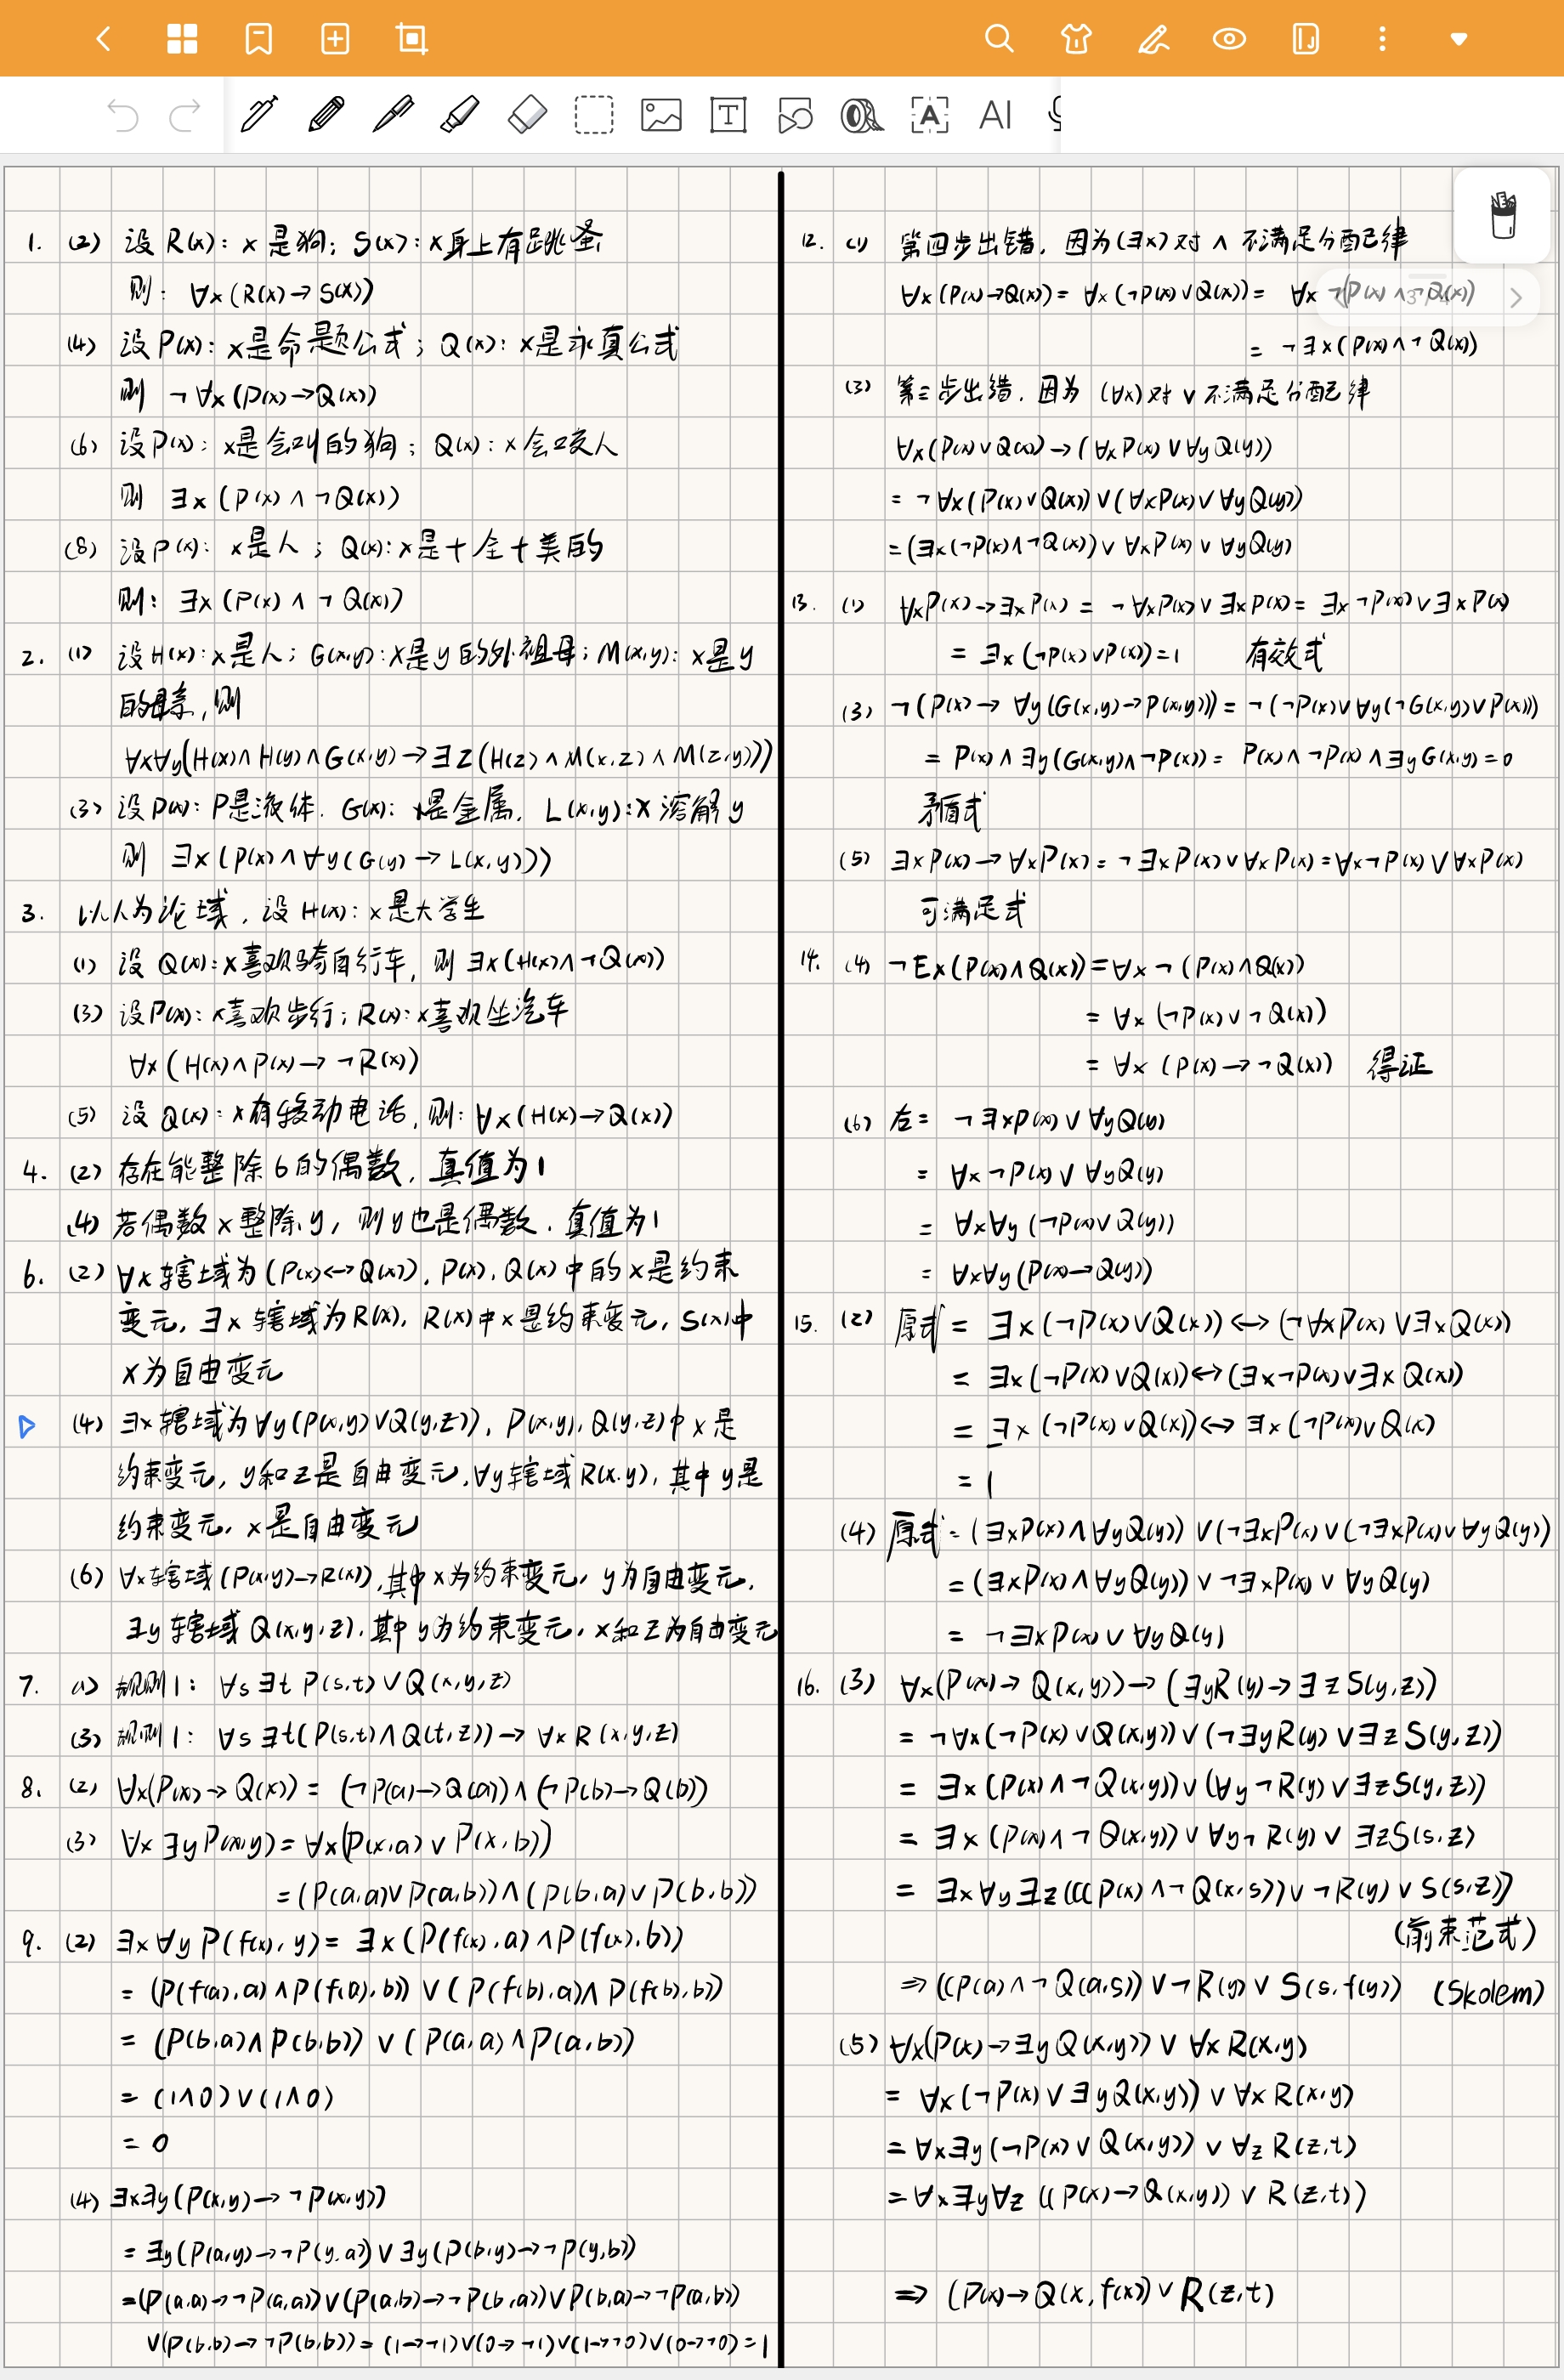 AI
1. (2) 设 R(x): x 是狗; S(x): x身上有跳蚤
则: ∀x(R(x)→S(x))
(4) 设 P(x): x是命题公式; Q(x): x是永真公式
则 ¬∀x(P(x)→Q(x))
(6) 设P(x): x是会叫的狗; Q(x): x会咬人
则 ∃x(P(x)∧¬Q(x))
(8) 设P(x): x是人; Q(x): x是十全十美的
则: ∃x(P(x)∧¬Q(x))
2. (1) 设H(x): x是人; G(x,y): x是y的外祖母; M(x,y): x是y
的母亲,则
∀x∀y(H(x)∧H(y)∧G(x,y)→∃z(H(z)∧M(x,z)∧M(z,y)))
(3) 设P(x): P是液体. G(x): x是金属. L(x,y): x溶解y
则 ∃x(P(x)∧∀y(G(y)→L(x,y)))
3. 以人为论域, 设H(x): x是大学生
(1) 设 Q(x): x喜欢骑自行车, 则 ∃x(H(x)∧¬Q(x))
(3) 设P(x): x喜欢步行; R(x): x喜欢坐汽车
∀x(H(x)∧P(x)→¬R(x))
(5) 设 Q(x): x有移动电话, 则: ∀x(H(x)→Q(x))
4. (2) 存在能整除6的偶数, 真值为1
(4) 若偶数x整除y, 则y也是偶数. 真值为1
6. (2) ∀x辖域为(P(x)↔Q(x)), P(x), Q(x)中的x是约束
变元, ∃x辖域为R(x), R(x)中x是约束变元, S(x)中
x为自由变元
(4) ∃x辖域为∀y(P(x,y)∨Q(y,z)), P(x,y), Q(y,z)中x是
约束变元, y和z是自由变元, ∀y辖域R(x,y), 其中y是
约束变元, x是自由变元
(6) ∀x辖域(P(x,y)→R(x)), 其中x为约束变元, y为自由变元,
∃y辖域Q(x,y,z), 其中y为约束变元, x和z为自由变元
7. (1) 规则1: ∀s∃t P(s,t)∨Q(x,y,z)
(3) 规则1: ∀s∃t(P(s,t)∧Q(t,z))→∀xR(x,y,z)
8. (2) ∀x(P(x)→Q(x)) = (¬P(a)→Q(a))∧(¬P(b)→Q(b))
(3) ∀x∃yP(x,y) = ∀x(P(x,a)∨P(x,b))
=(P(a,a)∨P(a,b))∧(P(b,a)∨P(b,b))
9. (2) ∃x∀yP(f(x),y) = ∃x(P(f(x),a)∧P(f(x),b))
= (P(f(a),a)∧P(f(a),b))∨(P(f(b),a)∧P(f(b),b))
= (P(b,a)∧P(b,b))∨(P(a,a)∧P(a,b))
= (1∧0)∨(1∧0)
= 0
(4) ∃x∃y(P(x,y)→¬P(x,y))
= ∃y(P(a,y)→¬P(y,a))∨∃y(P(b,y)→¬P(y,b))
=(P(a,a)→¬P(a,a))∨(P(a,b)→¬P(b,a))∨P(b,a)→¬P(a,b))
∨(P(b,b)→¬P(b,b)) = (1→¬1)∨(0→¬1)∨(1→¬0)∨(0→¬0)=1
12. (1) 第四步出错, 因为(∃x)对∧不满足分配律
∀x(P(x)→Q(x)) = ∀x(¬P(x)∨Q(x)) = ∀x¬(P(x)∧¬Q(x))
= ¬∃x(P(x)∧¬Q(x))
(3) 第三步出错, 因为(∀x)对∨不满足分配律
∀x(P(x)∨Q(x))→(∀xP(x)∨∀yQ(y))
= ¬∀x(P(x)∨Q(x))∨(∀xP(x)∨∀yQ(y))
=(∃x(¬P(x)∧¬Q(x))∨∀xP(x)∨∀yQ(y)
13. (1) ∀xP(x)→∃xP(x) = ¬∀xP(x)∨∃xP(x) = ∃x¬P(x)∨∃xP(x)
= ∃x(¬P(x)∨P(x))=1 有效式
(3) ¬(P(x)→∀y(G(x,y)→P(x,y))) = ¬(¬P(x)∨∀y(¬G(x,y)∨P(x)))
= P(x)∧∃y(G(x,y)∧¬P(x)) = P(x)∧¬P(x)∧∃yG(x,y)=0
矛盾式
(5) ∃xP(x)→∀xP(x) = ¬∃xP(x)∨∀xP(x) = ∀x¬P(x)∨∀xP(x)
可满足式
14. (4) ¬Ex(P(x)∧Q(x)) = ∀x¬(P(x)∧Q(x))
= ∀x(¬P(x)∨¬Q(x))
= ∀x(P(x)→¬Q(x)) 得证
(6) 左 = ¬∃xP(x)∨∀yQ(y)
= ∀x¬P(x)∨∀yQ(y)
= ∀x∀y(¬P(x)∨Q(y))
= ∀x∀y(P(x)→Q(y))
15. (2) 原式 = ∃x(¬P(x)∨Q(x))↔(¬∀xP(x)∨∃xQ(x))
= ∃x(¬P(x)∨Q(x))↔(∃x¬P(x)∨∃xQ(x))
= ∃x(¬P(x)∨Q(x))↔∃x(¬P(x)∨Q(x)
= 1
(4) 原式 = (∃xP(x)∧∀yQ(y))∨(¬∃xP(x)∨(¬∃xP(x)∨∀yQ(y))
= (∃xP(x)∧∀yQ(y))∨¬∃xP(x)∨∀yQ(y)
= ¬∃xP(x)∨∀yQ(y)
16. (3) ∀x(P(x)→Q(x,y))→(∃yR(y)→∃zS(y,z))
= ¬∀x(¬P(x)∨Q(x,y))∨(¬∃yR(y)∨∃zS(y,z))
= ∃x(P(x)∧¬Q(x,y))∨(∀y¬R(y)∨∃zS(y,z))
= ∃x(P(x)∧¬Q(x,y))∨∀y¬R(y)∨∃zS(s,z)
= ∃x∀y∃z(((P(x)∧¬Q(x,s))∨¬R(y)∨S(s,z))
(前束范式)
⇒((P(a)∧¬Q(a,s))∨¬R(y)∨S(s,f(y)) (Skolem)
(5) ∀x(P(x)→∃yQ(x,y))∨∀xR(x,y)
= ∀x(¬P(x)∨∃yQ(x,y))∨∀xR(x,y)
= ∀x∃y(¬P(x)∨Q(x,y))∨∀zR(z,t)
= ∀x∃y∀z((P(x)→Q(x,y))∨R(z,t))
⇒ (P(x)→Q(x,f(x))∨R(z,t)